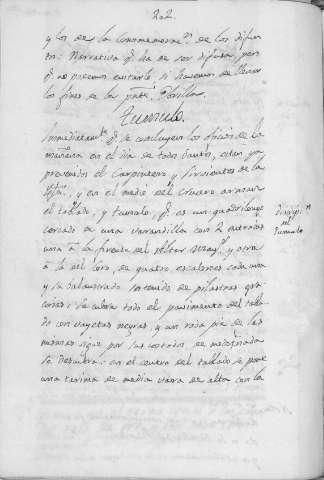 202.
y los de la Conmemorn. de los difun
tos: Narrativa q. ha de ser difusa, pero
q. no podemos evitarla si havemos de llenar
los fines de la prãte. Obrilla.
Tumulo.
Immediatamte. q. se concluyen los oficios de la
mañana en el dia de todos Santos, estan ya
prevenidos el Carpintero y Sirvientes de la
Yga., y en el medio del Crucero arman
el tablado, y tumulo, q. es un quadrilongo
cercado de una varandilla con 2 entradas
una á la frente del Altar Mayr. y otra
á la del Coro, de quatro escalones cada una
y su balaustrado sostenido de pilastras
se cubre todo el pavimento del tabla
do con vayetas negras, y un roda pie de las
mismas sigue por sus costados de
la Descubierta: en el centro del tablado se pone
una tarima de media vara de alto con la
Descripn.
del
Tumulo.